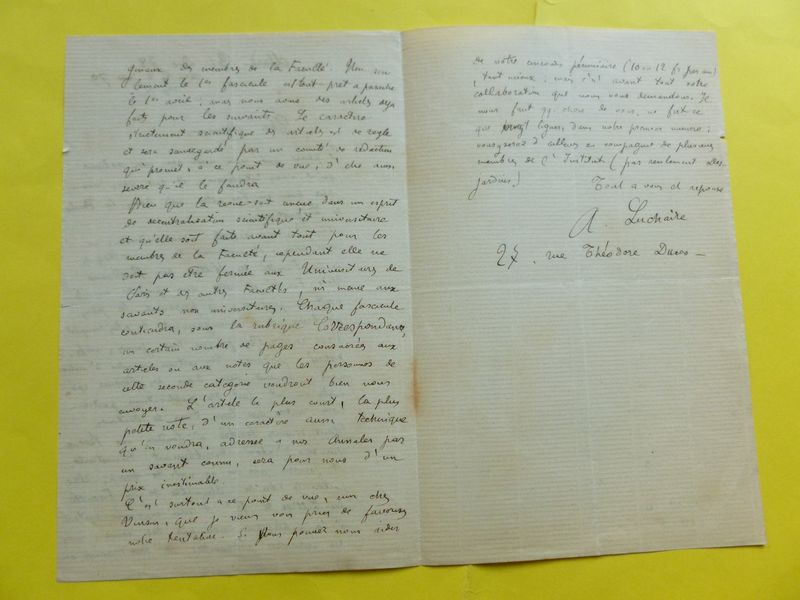 ginaux des membres de la Faculté. Non seu
lement le 1er fascicule est tout prêt à paraître
le 1er avril ; mais nous avons des articles déjà
faits pour les suivants. Le caractère
strictement scientifique des articles est de règle
et sera sauvegardé par un comité de rédaction
qui promet, à ce point de vue, d'être aussi
sévère qu'il le faudra
Bien que la revue soit conçue dans un esprit
de décentralisation scientifique et universitaire
et qu'elle soit faite avant tout pour les
membres de la Faculté, cependant elle ne
doit pas être fermée aux Universitaires de
Paris et des autres Facultés, ni même aux
savants non universitaires. Chaque fascicule
contiendra, sous la rubrique Correspondance,
un certain nombre de pages consacrées aux
articles ou aux notes que les personnes de
cette seconde catégorie voudront bien nous
envoyer. L'article le plus court, la plus
petite note, d'un caractère aussi technique
qu'on voudra, adressée à nos Annales par
un savant connu, sera pour nous d'un
prix inestimable.
C'est surtout à ce point de vue, mon cher
que je viens vous prier de favoriser
notre tentative. Si vous pouvez nous aider
de votre concours pécuniaire (10 ou 12 f. par an)
, tant mieux ; mais c'est avant tout votre
collaboration que nous vous demandons. Il
nous faut qq. chose de vous, ne fût-ce
que vingt lignes dans notre premier numéro ;
vous y serez d'ailleurs en compagnie de plusieurs
membres de l'Institut (pas seulement Des
jardins.)
Tout à vous et réponse
A. Luchaire
27, rue Théodore Ducos